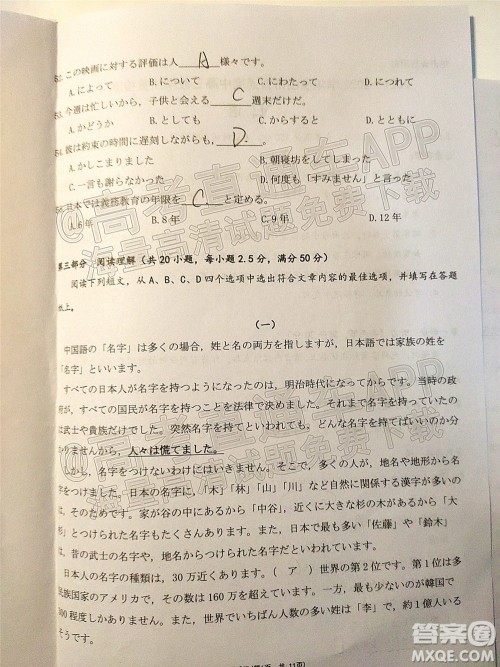 52.この映画に対する評価は人 A 様々です。
A.によって B.について C.にわたって D.につれて
53.今週は忙しいから、子供と会える C 週末だけだ。
A.かどうか B.とっても C.からすると D.とともに
54.彼は約束の時間に遅刻しながらも、 D.
A.かしこまりました B.朝寝坊をしてしまった
C.一言も謝らなかった D.何度も「すみません」と言った
55.日本では義務教育の年限を C と定める。
A.6年 B.8年 C.9年 D.12年
第三部分 阅读理解（共20小题，每小题2.5分，满分50分）
阅读下列短文，从A、B、C、D四个选项中选出符合文章内容的最佳选项，并填写在答题
纸上。
（一）
中国語の「名字」は多くの場合，姓と名の両方を指しますが，日本語では家族の姓を
「名字」といいます。
すべての日本人が名字を持つようになったのは，明治時代になってからです。当時の政
府が，すべての国民が名字を持つことを法律で決めました。
は武士や貴族だけでした。突然名字を持てと言われても，どんな名字を持てばいいのか分
かりませんから，人々は慌てました。
しかし，名字をつけないわけにはいきません。そこで，多くの人が，地名や地形から名
字をつけました。日本の名字に，「木」「林」「山」「川」など自然に関係する漢字が多いの
は，そのためです。家が谷の中にあるから「中谷」，近くに大きな杉の木があるから「大
杉」といった名字もたくさんあります。日本で最も多い「佐藤」や「鈴木」
は，昔の武士の名字や，地域からつけられた名字だといわれています。
日本人の名字の種類は，30万近くあります。（ ア ）世界の第2位です。第1位は多
民族国家のアメリカで，その数は160万を超えています。一方，最も少ないのが韓国で
300程度しかありません。また，世界でいちばん人数の多い姓は「李」で，約1億人いる
そうです。
@高考直通车APP
海量高清试题免费下载
@高考直通车APP
海量高清试题免费下载
答案圈
MXQE.COM